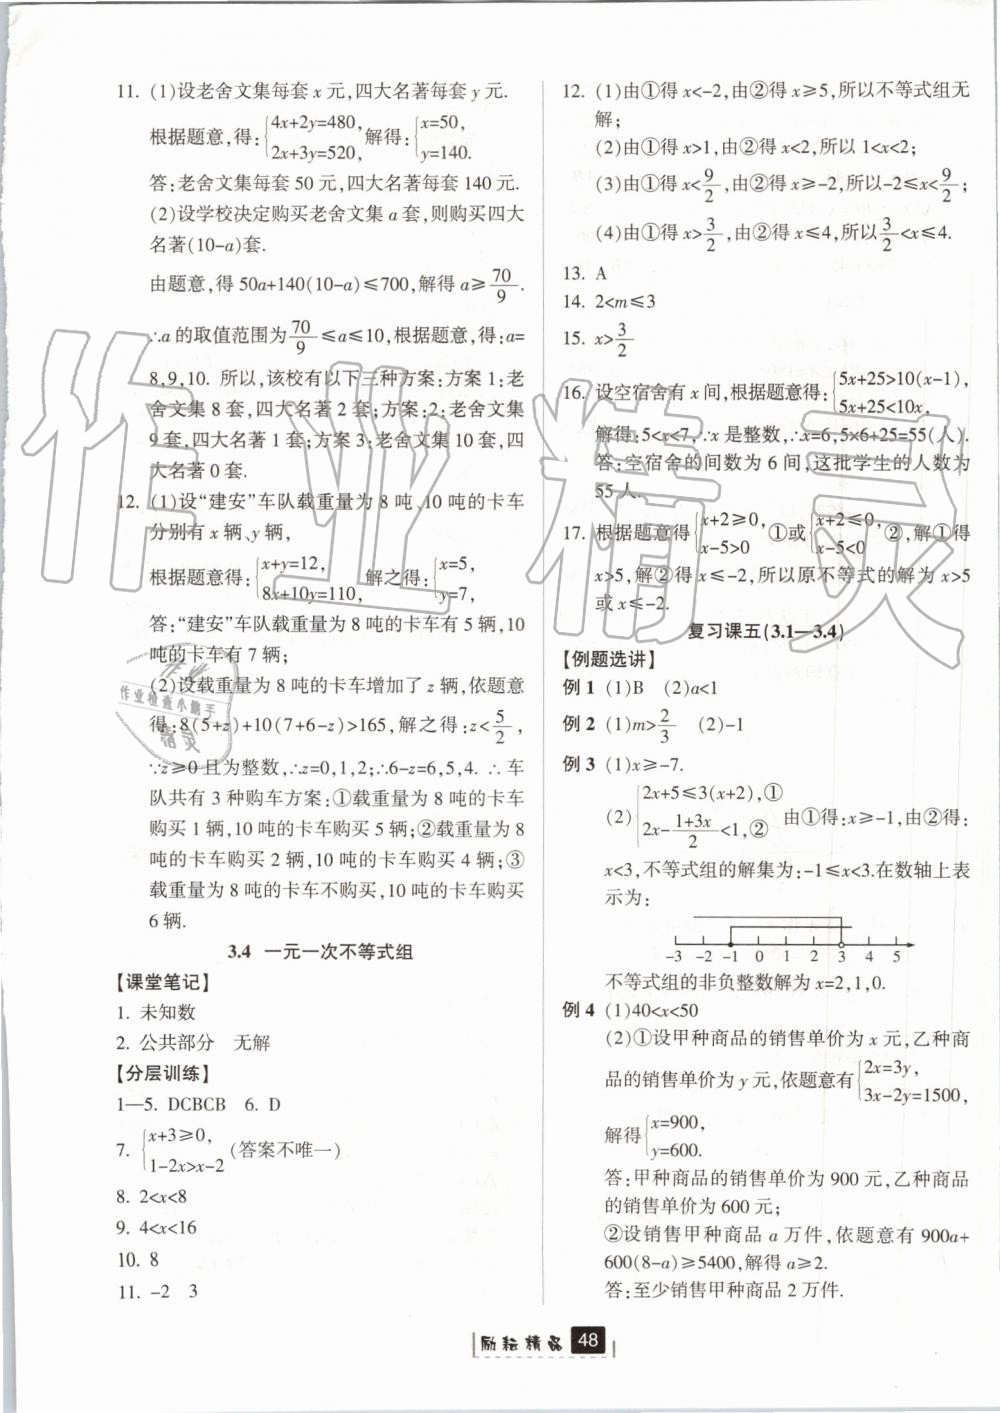 11. (1)设老舍文集每套 x 元,四大名著每套 y 元.
根据题意,得:{4x+2y=480, 2x+3y=520, 解得:{x=50, y=140.
答:老舍文集每套 50 元,四大名著每套 140 元.
(2)设学校决定购买老舍文集 a 套,则购买四大
名著(10-a)套.
由题意,得 50a+140(10-a)≤700,解得 a≥70/9.
∴a 的取值范围为70/9≤a≤10,根据题意,得:a=
8,9,10. 所以,该校有以下三种方案:方案 1:老
舍文集 8 套,四大名著 2 套;方案:2:老舍文集
9 套,四大名著 1 套;方案 3:老舍文集 10 套,四
大名著 0 套.
12. (1)设“建安”车队载重量为 8 吨、10 吨的卡车
分别有 x 辆、y 辆,
根据题意得:{x+y=12, 8x+10y=110, 解之得:{x=5, y=7,
答:“建安”车队载重量为 8 吨的卡车有 5 辆,10
吨的卡车有 7 辆;
(2)设载重量为 8 吨的卡车增加了 z 辆,依题意
得:8(5+z)+10(7+6-z)>165,解之得:z<5/2,
∵z≥0 且为整数,∴z=0,1,2;∴6-z=6,5,4. ∴车
队共有 3 种购车方案:①载重量为 8 吨的卡车
购买 1 辆,10 吨的卡车购买 5 辆;②载重量为 8
吨的卡车购买 2 辆,10 吨的卡车购买 4 辆;③
载重量为 8 吨的卡车不购买,10 吨的卡车购买
6 辆.
3.4 一元一次不等式组
【课堂笔记】
1. 未知数
2. 公共部分 无解
【分层训练】
1—5. DCBCB 6. D
7. {x+3≥0, 1-2x>x-2 (答案不唯一)
8. 2<x<8
9. 4<x<16
10. 8
11. -2 3
12. (1)由①得 x<-2,由②得 x≥5,所以不等式组无
解;
(2)由①得 x>1,由②得 x<2,所以 1<x<2;
(3)由①得 x<9/2,由②得 x≥-2,所以-2≤x<9/2;
(4)由①得 x>3/2,由②得 x≤4,所以3/2<x≤4.
13. A
14. 2<m≤3
15. x>3/2
16. 设空宿舍有 x 间,根据题意得:{5x+25>10(x-1), 5x+25<10x,
解得:5<x<7,∴x 是整数,∴x=6,5×6+25=55(人).
答:空宿舍的间数为 6 间,这批学生的人数为
55 人.
17. 根据题意得{x+2≥0, x-5>0 ①或{x+2≤0, x-5<0 ②,解①得
x>5,解②得 x≤-2,所以原不等式的解为 x>5
或 x≤-2.
复习课五(3.1—3.4)
【例题选讲】
例 1 (1)B (2)a<1
例 2 (1)m>2/3 (2)-1
例 3 (1)x≥-7.
(2){2x+5≤3(x+2),① 2x-(1+3x)/2<1,② 由①得:x≥-1,由②得:
x<3,不等式组的解集为:-1≤x<3.在数轴上表
示为:
-3 -2 -1 0 1 2 3 4 5
不等式组的非负整数解为 x=2,1,0.
例 4 (1)40<x<50
(2)①设甲种商品的销售单价为 x 元,乙种商
品的销售单价为 y 元,依题意有{2x=3y, 3x-2y=1500,
解得{x=900, y=600.
答:甲种商品的销售单价为 900 元,乙种商品
的销售单价为 600 元;
②设销售甲种商品 a 万件,依题意有 900a+
600(8-a)≥5400,解得 a≥2.
答:至少销售甲种商品 2 万件.
励耘精品 48
作业精灵
作业
作业检查小能手
精灵